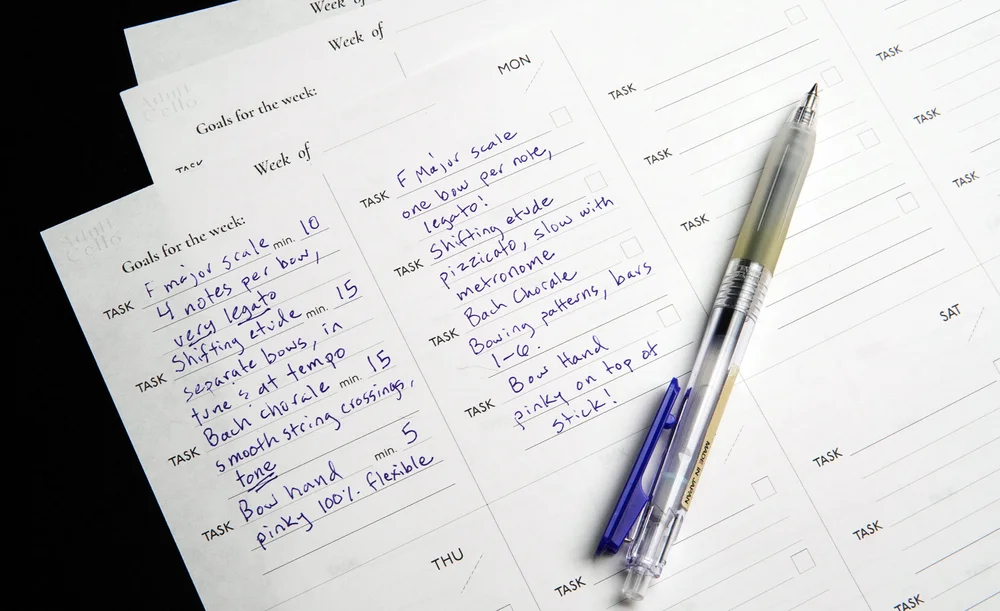 Week of
Week of
Goals for the week:
TASK
Week of
Adult
Cello
Goals for the week:
TASK F major scale min. 10
4 notes per bow,
very legato
TASK Shifting etude min. 15
separate bows, in
tune & at tempo
TASK Bach chorale min. 15
smooth string crossings,
tone
TASK Bow hand min. 5
pinky 100% flexible
MON
TASK F Major scale
one bow per note,
legato!
TASK Shifting etude
pizzicato, slow with
metronome
TASK Bach Chorale
Bowing patterns, bars
1-6.
TASK Bow Hand
pinky on top of
stick!
THU
TASK
TASK
TASK
TASK
SAT
TASK
TASK
TASK
TASK
TASK
TASK
MADE IN JAPAN